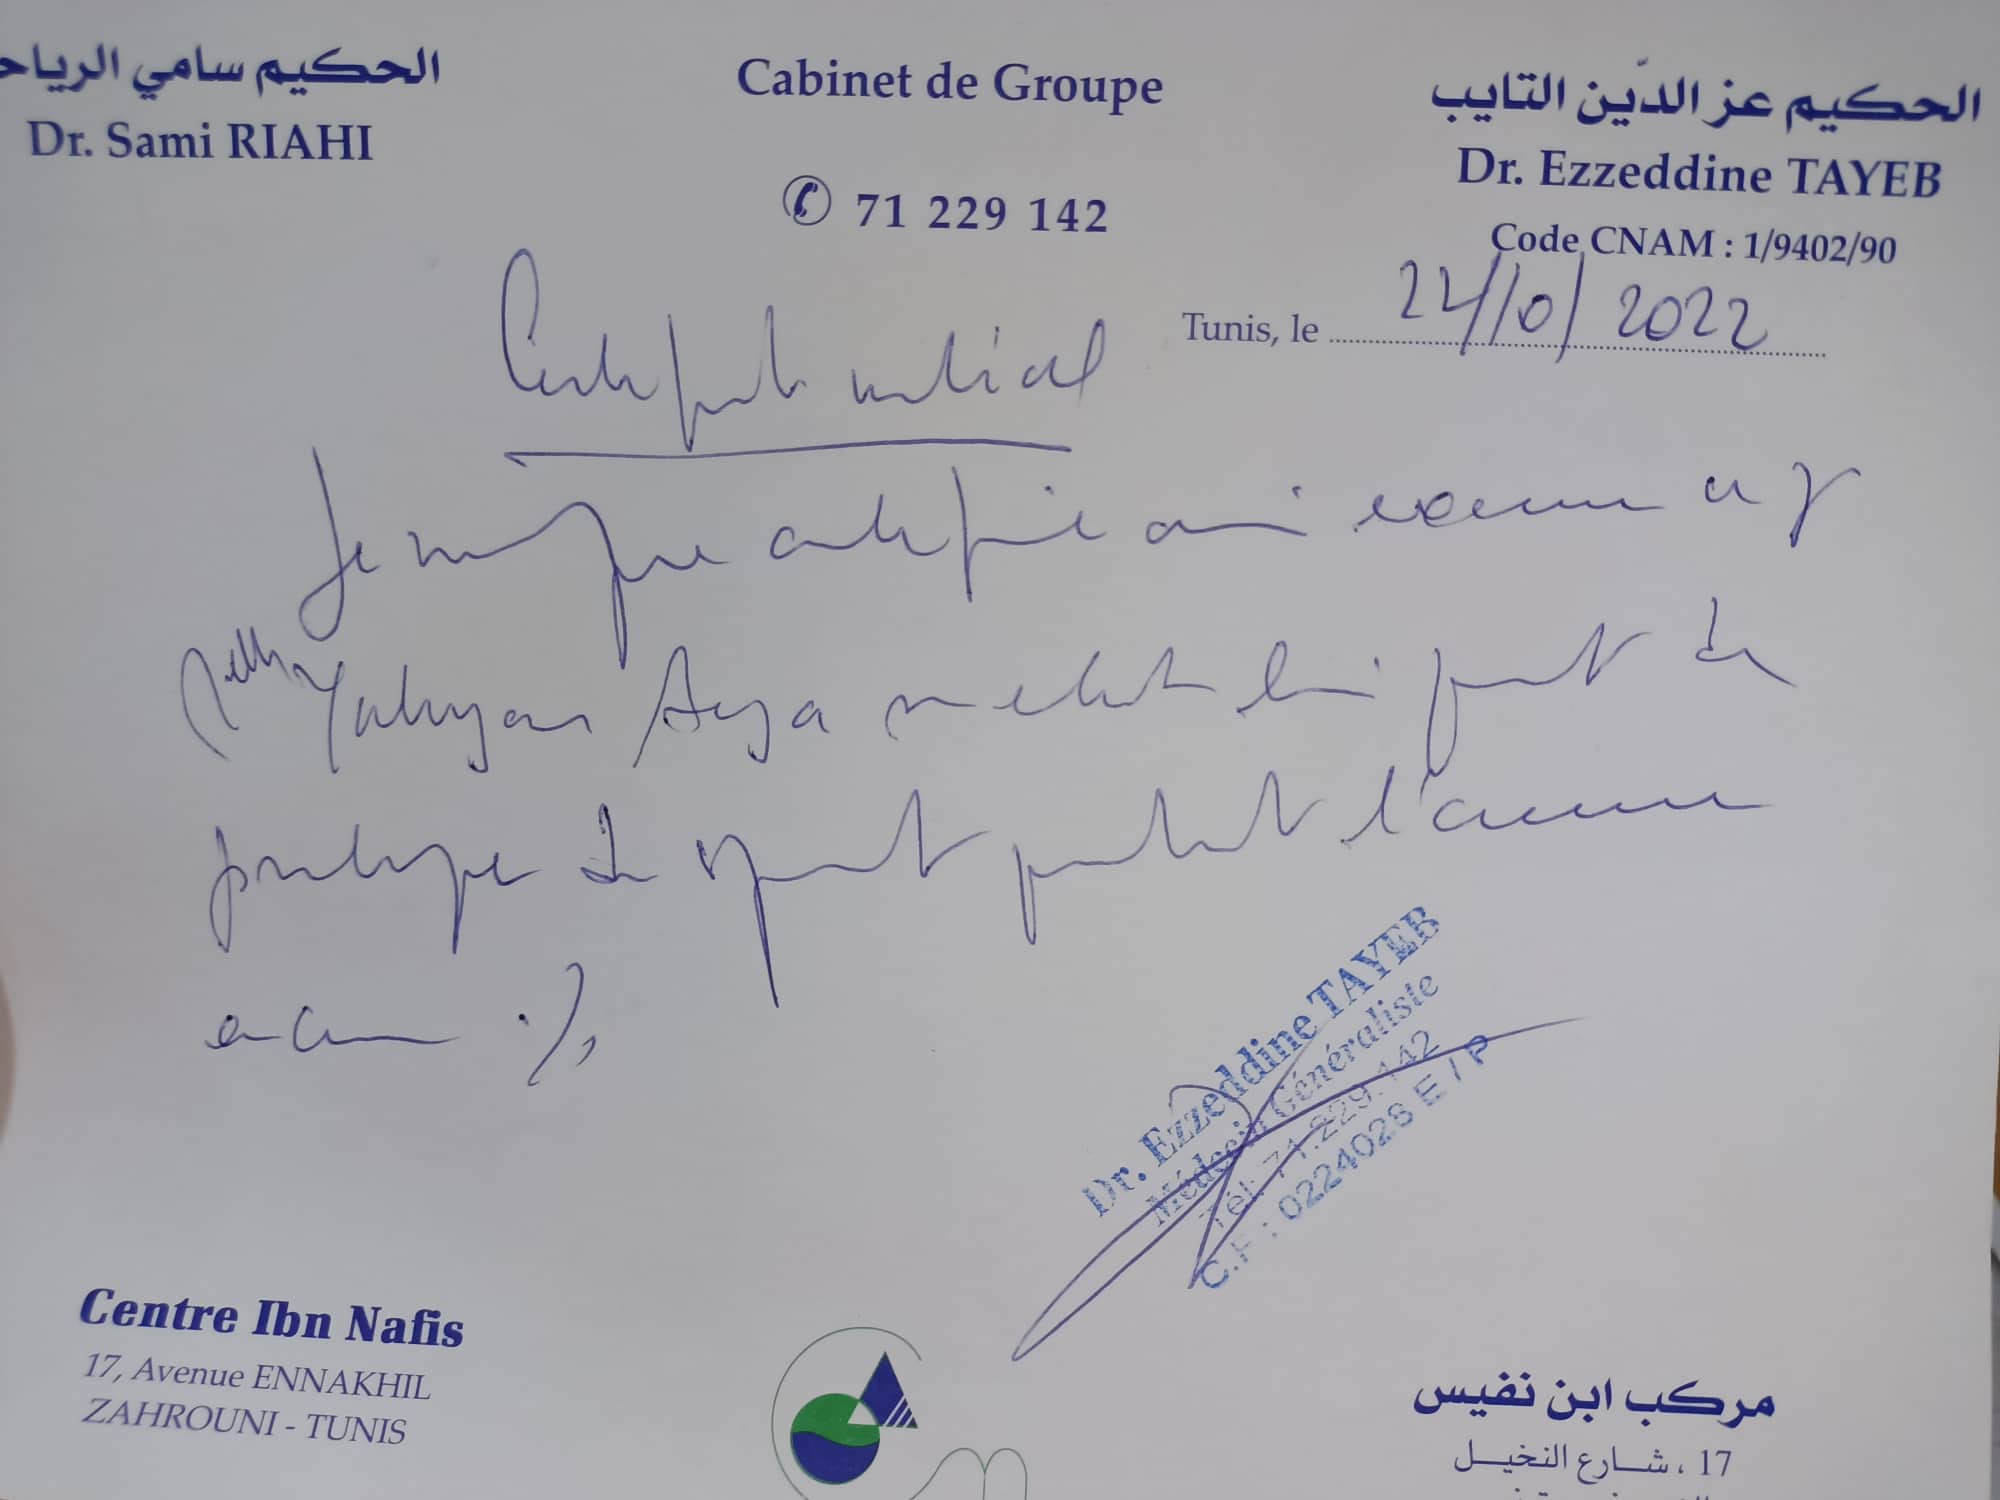 الحكيم سامي الرياح
Dr. Sami RIAHI
Cabinet de Groupe
71 229 142
الحكيم عز الدّين التايب
Dr. Ezzeddine TAYEB
Code CNAM : 1/9402/90
Tunis, le 24/10/2022
Certificat médical
Je soussigné certifie avoir examiné ce jour
Melle Yahyaoui Aya
pratiquer le sport pendant l'année
en cours ./.
Dr. Ezzeddine TAYEB
Médecin Généraliste
Tél: 71.229.142
C.F : 0224028 E / P
Centre Ibn Nafis
17, Avenue ENNAKHIL
ZAHROUNI - TUNIS
مركب ابن نفيس
17 ، شارع النخيل